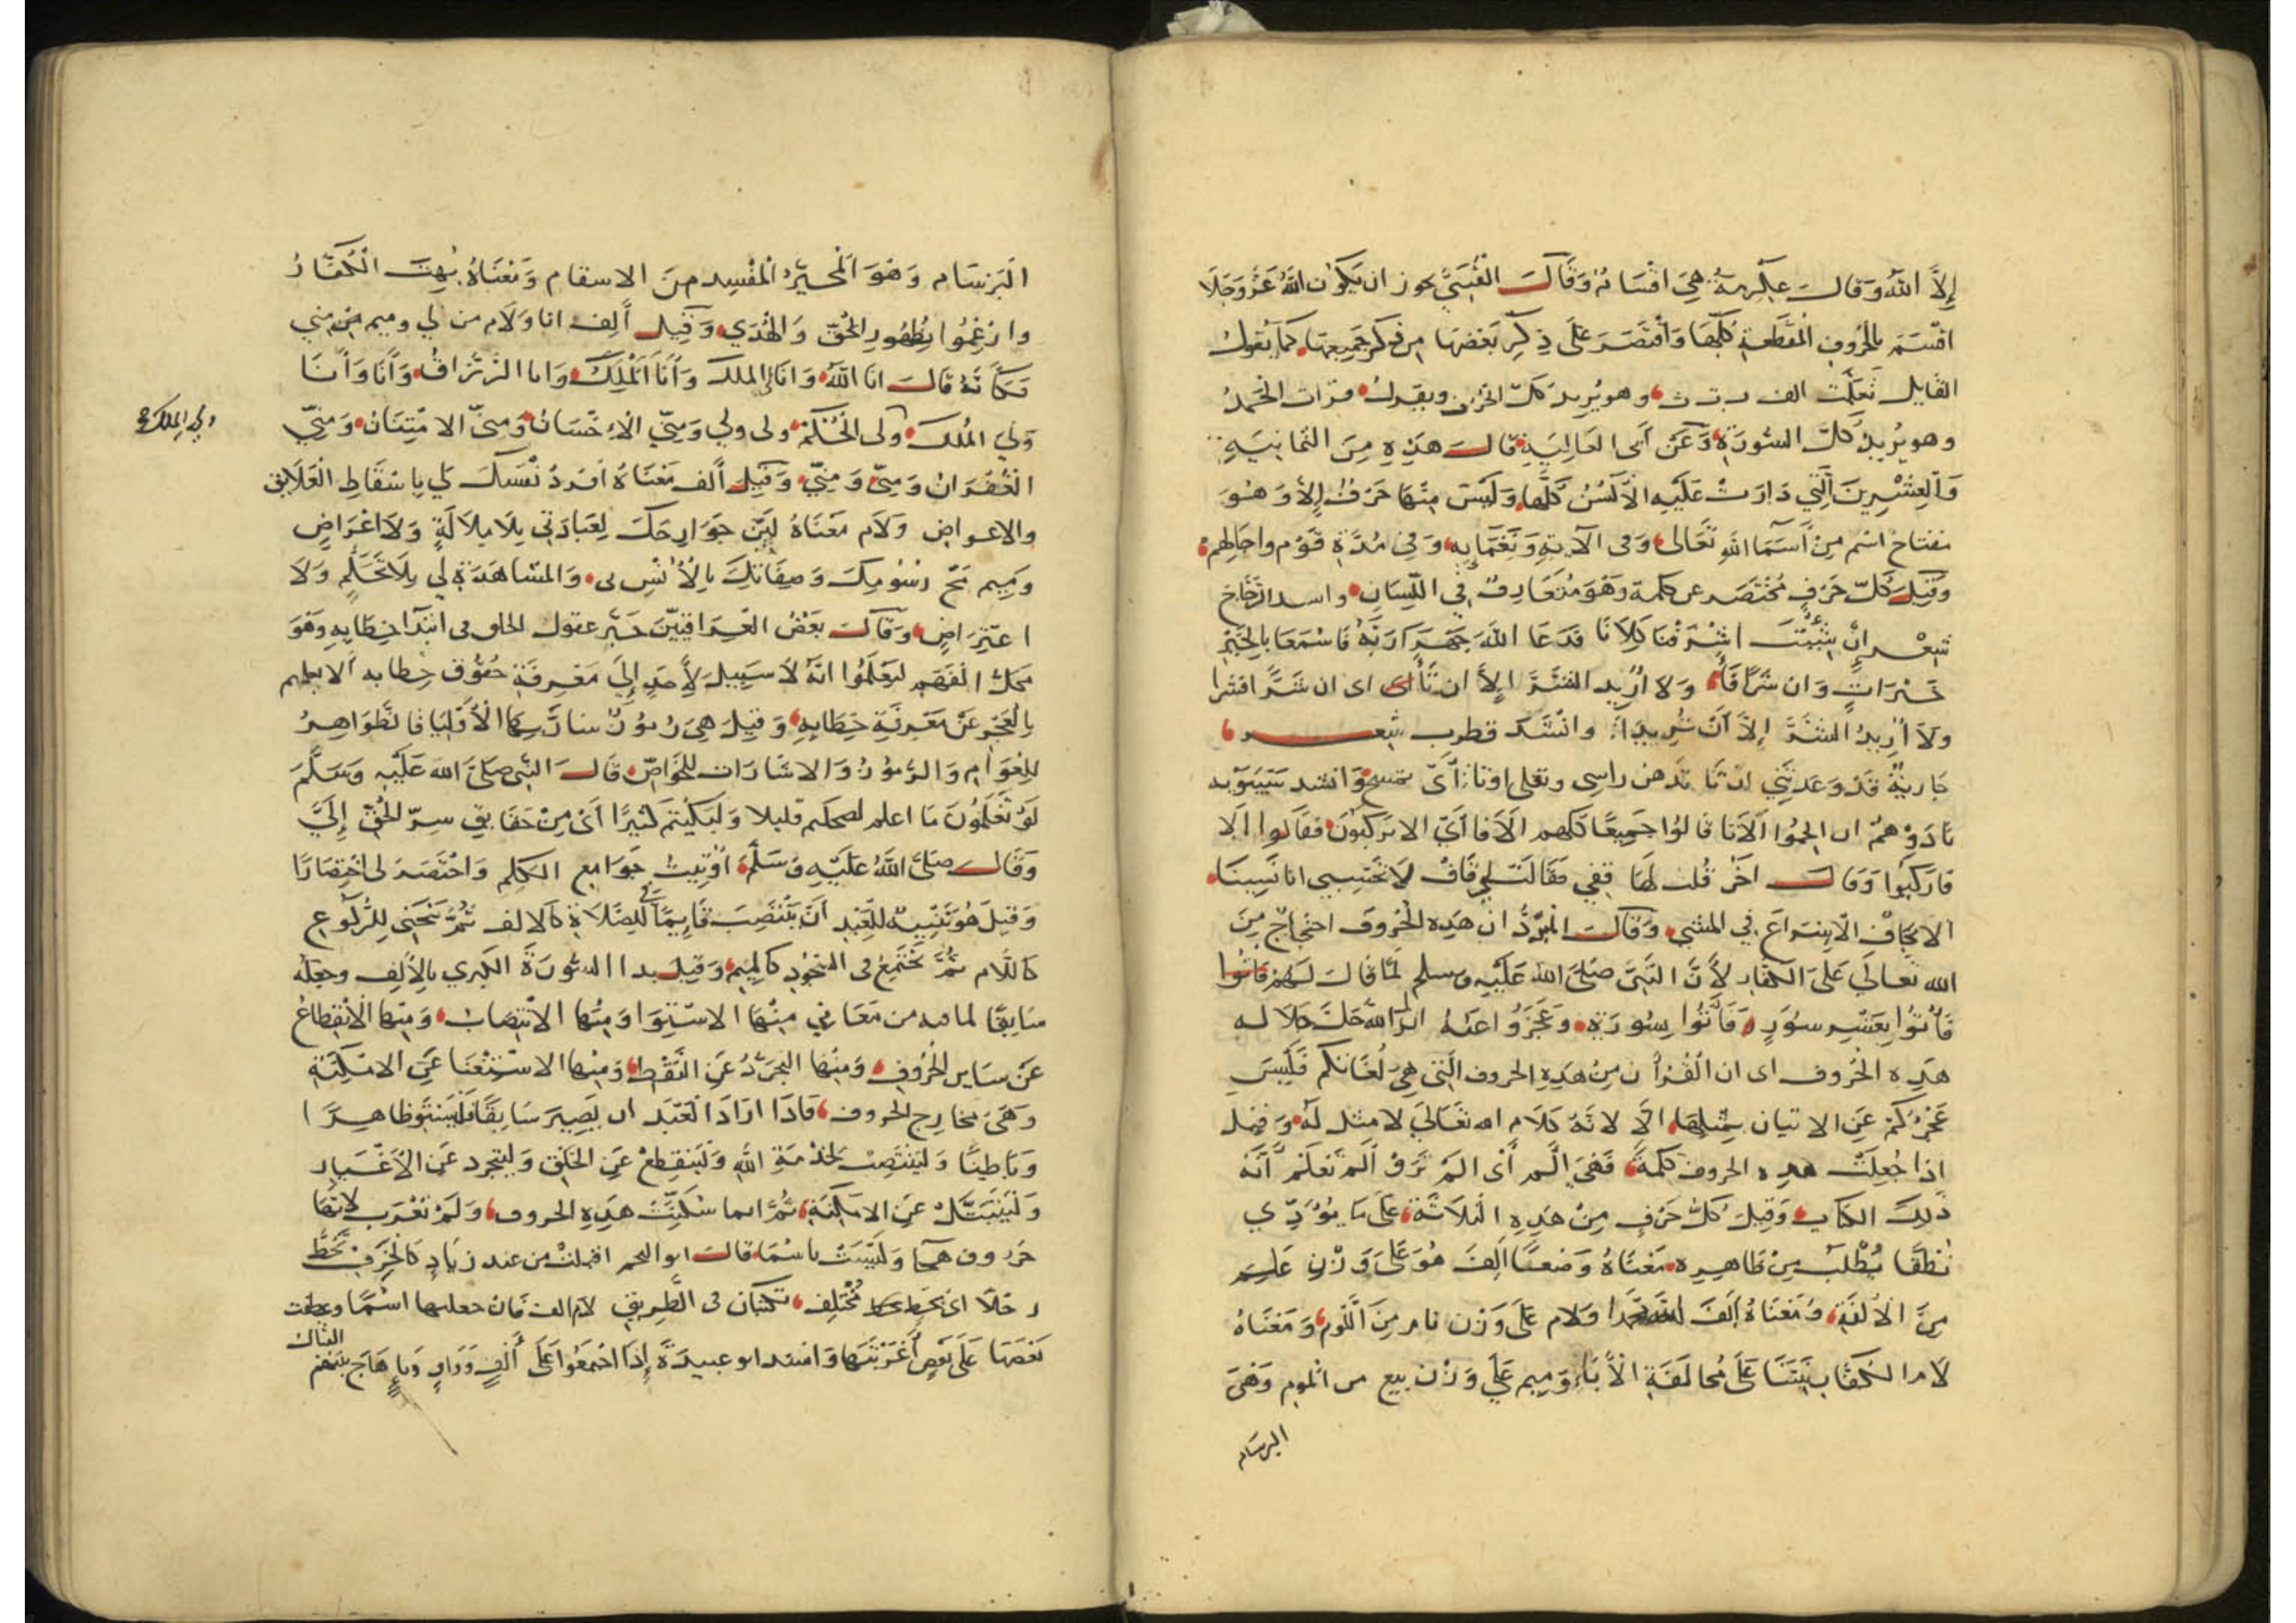 إِلاَّ اللهُ وَقالَ عِكْرِمَةُ هِيَ اَقْسَامٌ وَقَالَ القُتَبيّ يجوز ان يَكوُن اللهُ عَزَّ وَجَلَّا
اقْسَمَ بِالحُرُوفِ المُقَطَّعةِ كُلِّهَا وَاقْتَصَرَ عَلَى ذِكْرِ بَعْضِهَا مِن ذكر جَمِيعِهَا كمَا يَقُولُ
القَايل تَعَلَّمْت الف ب ت ث وهو يُرِيدُ كلّ الحُرُوف ويقولُ قرات الحَمْدُ
وهو يُرِيدُ كلَّ السُّورَةِ وَعَنْ أبى العَالِيَةِ قالَ هَذِهِ مِنَ الثمَانِيَةِ
وَالعِشْرِينَ الَّتِي دَارَتْ عَلَيهِ الاَلْسُنُ كُلُّهَا وَلَيْسَ مِنْهَا حَرْفٌ إِلاَّ وَهُوَ
مفتاح اسْم مِنْ أَسْمَا اللهِ تَعَالى وَفى آلآيهِ وَنَعْمَايِهِ وَفى مُدَّةِ قَوْمٍ واجَالِهِمْ
وَقِيلَ كُلّ حَرْفٍ مُخْتَصَر عن كلمة وَهْوَ مُتَعَارِفٌ فِي اللِّسَانِ وانشد الزَجّاج
شِعْر إِنْ شِئْتَ اَشْرَفْنَا كِلاَنَا فَدَعَا اللهَ جَهَرَا رَبَّهُ فَاسْمَعَا بِالخَيْرِ
خَيْرَاتٍ وَان شَرًّا فَأَ وَلاَ اُرِيد الشَرَّ إِلاَّ ان تَأ اى ان شَرًّا فشرا
ولاَ اُرِيدُ الشَرَّ اِلاَّ أَنْ تُرِيدَا وانْشَد قطرب شِعر
جَارِيَةٌ قَدْ وَعَدَتْنِي انْ تَا تَدهن راسى وتفلى اوتا أَىْ تمسح وَانشد سِيبَوَيه
نَادَوْهُمُ ان الجمُوا اَلاَتَا قَالوُا جَمِيعًا كلهم اَلاَفَا أَىْ الا تَركَبُون فقالوا اَلا
فارْكَبُوا وَقالَ اَخَر قُلت لَهَا قِفِي فَقَالَتْ لِي قَافْ لاَ تَحْسِبِي انَا نَسِينَا
الايجَافْ الاِسْرَاعَ في المشي وَقالَ المبَرّدُ ان هَذِهِ الحُرُوفَ احْتِجَاجٌ مِنَ
اللهِ تعالَي عَلىَ الكفار لأَنَّ النَّبيَّ صَلىَّ اللهُ عَلَيْهِ وسلم لمَّا قالَ لَهُمْ فاتُوا
فَاْتوُا بِعَشْرِ سُوَرٍ وَفَاْتوُا بِسُورَةٍ وعَجَزُوا عَنهُ انزَلَ اللهُ جَلَّ جَلاَلَه
هَذِهِ الحُروف اى ان القُرْأن مِنْ هَذِهِ الحروف الَّتي هِيَ لُغَاتكم فَلَيْسَ
عَجْزُكُمْ عَنِ الاتيان بمثلِهَا اِلاَّ لاَنَّهُ كَلاَم الله تَعَالىَ لا مثل لَهُ وَقِيل
اذا جُعِلَتْ هذه الحروف كلمَةً فَهْىَ الَّم أَىْ المْ تَرَوْ المْ تَعْلَمْ أنَّهُ
ذَلكَ الكتاب وَقيلَ كلُّ حَرْفٍ مِنْ هَذِهِ الثلاَثَةِ عَلىَ مَا يُوَّدِّي
نُطْقًا يُطْلَبُ مِنْ ظاهِرِهِ مَعْناهُ وَضعًا اَلِفَ هُوَ عَلَى وَزْنِ عَلِمَ
مِنَ الاُلْفَةِ وَمَعْنَاهُ اَلِفَ اللهُ محمَّدا وَلام عَلَى وَزْن نام مِنَ اللَّوْم وَمَعْنَاهُ
لاَم الكُفَّا عَلىَ مُخالَفَةِ الأبَاءِ وَميم عَلَي وَزْن بيع من الموم وَهْىَ
البرسَام
الْبَرْسَام وَهْوَ المُحيّرُ المُفْسِد مِنَ الاسقام وَمَعْنَاهُ بُهِتَ الْكُفَّارُ
وارْغِمُوا بِظُهُورِ الحَقّ وَالهُدَي وَقِيلَ ألِف انا وَلاَم من لي وميم من مِني
فَكَأَنَّهُ قَالَ انَا اللهُ وَانَا لى الملك وَأَنَا الْمَلِكُ وانا الرَّزَّاقُ وَأَنَا وَأَنَا
وَلي المُلكُ ولى الحُكْم ولى ولي وَمنِّي الاِحْسَانُ وَمنىّ الامْتِنَانُ وَمِنِّي
ولي الملك صح
الْغُفْرَانُ وَمنىّ وَمِنّي وَقيلَ ألف مَعْنَاهُ افردْ نَفسَكَ لي بِاسْقَاطِ العَلاَيق
والاعراض وَلاَم مَعْنَاهُ لَيِّنْ جَوَارِحَكَ لِعِبَادَتي بِلاَ مِلاَلَةٍ وَلاَ اعْرَاضٍ
وَمِيم مَحّ رُسُومَكَ وَصِفَاتِكَ بِالأُنْسِ بى وَالمشَاهَدَةِ لي بِلاَ تَحَلّم وَلاَ
اعتِرَاضٍ وَقَالَ بَعْضُ العِرَاقِيِّينَ حَيَّر عقول الخلق فى ابْتِدَا خِطابِهِ وَهْوَ
مَحَلّ الْفَهْم لِيَعْلَمُوا انَّهُ لاَ سَبيلَ لأَحَدٍ إِلىَ مَعْرِفَةِ حُقُوق خِطابه الا بعلمهم
بِالْعَجْزِ عَنْ مَعْرِفَةِ خِطَابِهِ وَقِيلَ هِىَ رُمُوْزٌ سَارَّ بِهَا الأَوْلِيَا فَالظَّوَاهِرُ
لِلعَوَام وَالرُّمُوزُ وَالاشَارَات للخَوَاصّ قَالَ النَّبي صَلىَّ اللهُ عَلَيْهِ وَسَلَّمَ
لَوْ تَعْلَمُونَ مَا اعلم لضحكتم قليلا وَلَبَكَيْتُمْ كَثيرًا أَىْ مِنْ حَقَايِقِ سِرّ الحَقّ إِلَيَّ
وَقَالَ صَلىَّ اللهُ عَلَيْهِ وَسَلَّمَ أُوْتِيتُ جَوَامِع الكلِم وَاخْتُصِرَ لى اخْتِصَارًا
وَقيلَ هُوَ تَنْبِيهٌ لِلْعَبْدِ اَنْ يَنْتَصِبَ قَايِمًا فى الصَّلاَةِ كَالالف ثُمَّ يَنْحَنِي لِلرُّكُوعِ
كَاللَّام ثُمَّ يَجْتَمِعُ فى السّجُودِ كَالمِيمِ وَقِيلَ بدا السُّورَةَ الكُبْرَي بِالأَلِف وجَعَلَهُ
سَابِقًا لما فيه من مَعَانِي مِنْهَا الاسْتِوَا وَمِنْهَا الانْتِصَابُ وَمِنْهَا الاَنْقِطاعُ
عَنْ سَايِر الحُرُوفِ وَمِنْهَا التجَرُّدُ عَنِ النُّقْطِ وَمِنْهَا الاسْتِغْنَا عَنِ الامْكِنَةِ
وَهْىَ مخارِج الحروف فَاذَا ارَادَ الْعَبْدُ ان يَصِيرَ سَابِقًا فَلْيَسْتَوِ ظاهِرًا
وَبَاطِنًا وَليَنْتَصِبْ لخِدْمَةِ اللهِ وَليَنْقَطِعْ عَنِ الخَلْق وَليتجرد عَنِ الأَغْيار
وَلْيَتَبَتَّلْ عَنِ الامْكِنَةِ ثُمَّ انما سُكِّنَتْ هَذِهِ الحروف وَلَمْ تُعْرَب لأنَّهَا
حُرُوف هجَا وَليْسَتْ باسْمَا قالَ ابو النجم اقبلت من عند زِيَادٍ كَالخرِف تَخُطُّ
رجلاَ اىْ بخط مُخْتلِف تكتبَان فى الطَّريقِ لاَم الف فان جعلتها اسْمًا وعطفت
بَعْضَهَا عَلَى بَعْضٍ أَعْرَبْتَهَا وَانشد ابو عبيدَة إِذَا اجْتمَعُوا عَلَى أَلفٍ وَوَاوٍ وَياءٍ هَاجَ بَيْنَهُمْ
القتال